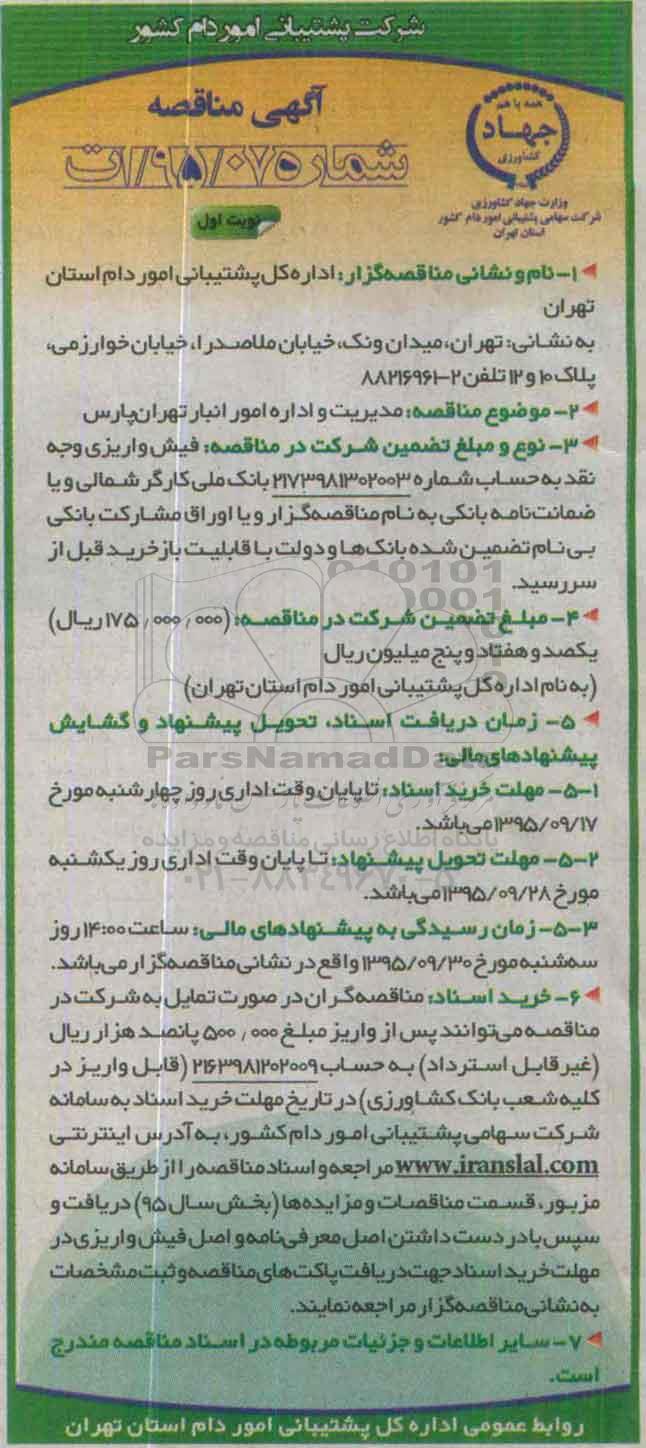 شرکت پشتیبانی امور دام کشور
همه با هم
جهاد
کشاورزی
وزارت جهاد کشاورزی
شرکت سهامی پشتیبانی امور دام کشور
استان تهران
آگهی مناقصه
شماره ۹۵/۰۷۵/ات
نوبت اول
۱- نام و نشانی مناقصه‌گزار: اداره کل پشتیبانی امور دام استان
تهران
به نشانی: تهران، میدان ونک، خیابان ملاصدرا، خیابان خوارزمی،
پلاک ۱۰ و ۱۲ تلفن ۲-۸۸۲۱۶۹۶۱
۲- موضوع مناقصه: مدیریت و اداره امور انبار تهران‌پارس
۳- نوع و مبلغ تضمین شرکت در مناقصه: فیش واریزی وجه
نقد به حساب شماره ۲۱۷۳۹۸۱۳۰۲۰۰۳ بانک ملی کارگر شمالی و یا
ضمانت‌نامه بانکی به نام مناقصه‌گزار و یا اوراق مشارکت بانکی
بی نام تضمین شده بانک‌ها و دولت با قابلیت بازخرید قبل از
سررسید.
۴- مبلغ تضمین شرکت در مناقصه: (۱۷۵٫۰۰۰٫۰۰۰ ریال)
یکصد و هفتاد و پنج میلیون ریال
(به نام اداره کل پشتیبانی امور دام استان تهران)
۵- زمان دریافت اسناد، تحویل پیشنهاد و گشایش
پیشنهادهای مالی:
ParsNamadData
۵-۱- مهلت خرید اسناد: تا پایان وقت اداری روز چهارشنبه مورخ
۱۳۹۵/۰۹/۱۷ می‌باشد.
پایگاه اطلاع رسانی مناقصه و مزایده
۵-۲- مهلت تحویل پیشنهاد: تا پایان وقت اداری روز یکشنبه
مورخ ۱۳۹۵/۰۹/۲۸ می‌باشد.
۵-۳- زمان رسیدگی به پیشنهادهای مالی: ساعت ۱۴:۰۰ روز
سه‌شنبه مورخ ۱۳۹۵/۰۹/۳۰ واقع در نشانی مناقصه‌گزار می‌باشد.
۶- خرید اسناد: مناقصه‌گران در صورت تمایل به شرکت در
مناقصه می‌توانند پس از واریز مبلغ ۵۰۰٫۰۰۰ پانصد هزار ریال
(غیر قابل استرداد) به حساب ۲۱۶۳۹۸۱۲۰۲۰۰۹ (قابل واریز در
کلیه شعب بانک کشاورزی) در تاریخ مهلت خرید اسناد به سامانه
شرکت سهامی پشتیبانی امور دام کشور، به آدرس اینترنتی
www.iranslal.com مراجعه و اسناد مناقصه را از طریق سامانه
مزبور، قسمت مناقصات و مزایده‌ها (بخش سال ۹۵) دریافت و
سپس با در دست داشتن اصل معرفی‌نامه و اصل فیش واریزی در
مهلت خرید اسناد جهت دریافت پاکت‌های مناقصه و ثبت مشخصات
به نشانی مناقصه‌گزار مراجعه نمایند.
۷- سایر اطلاعات و جزئیات مربوطه در اسناد مناقصه مندرج
است.
روابط عمومی اداره کل پشتیبانی امور دام استان تهران